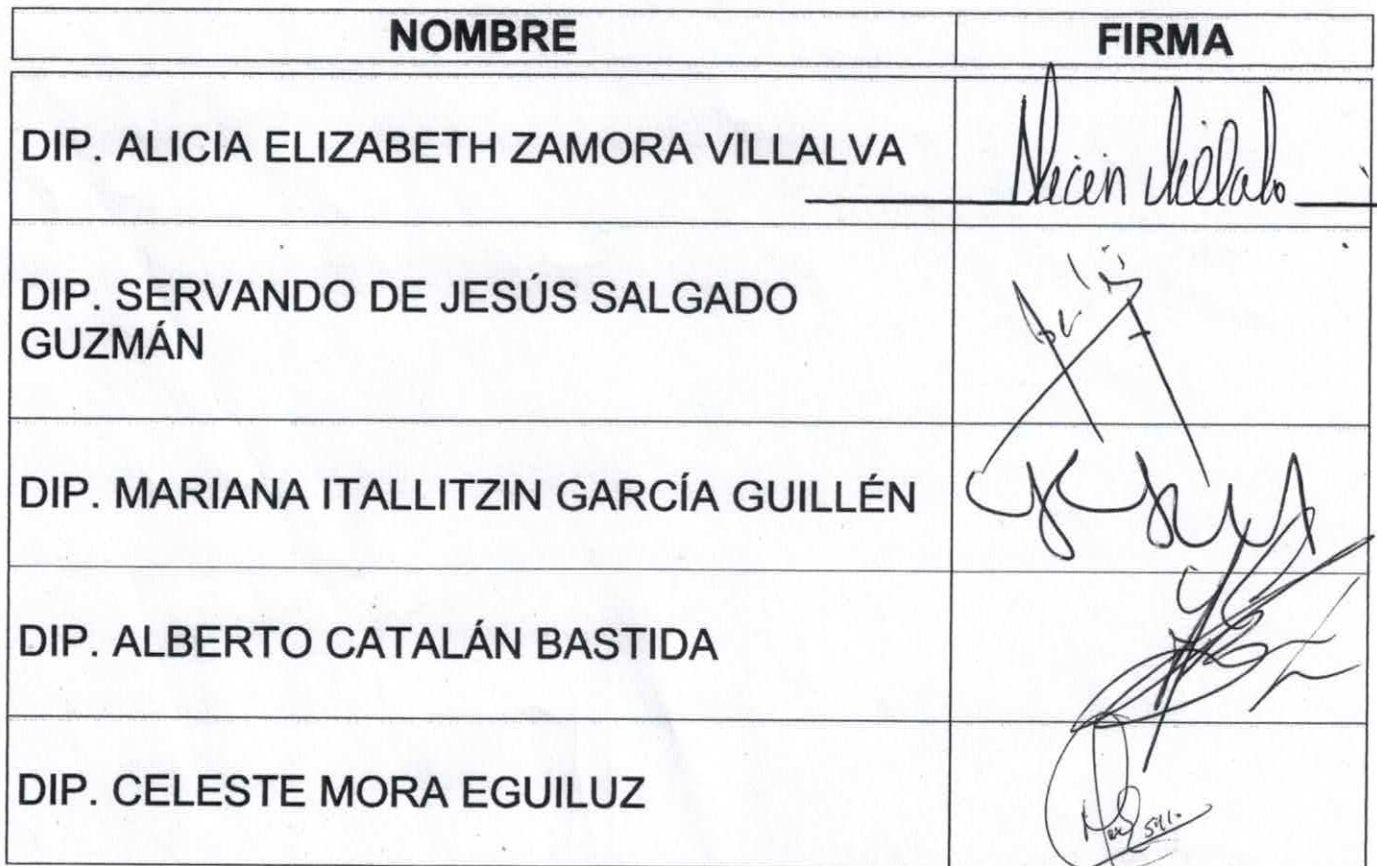 NOMBRE FIRMA
DIP. ALICIA ELIZABETH ZAMORA VILLALVA
DIP. SERVANDO DE JESÚS SALGADO
GUZMÁN
DIP. MARIANA ITALLITZIN GARCÍA GUILLÉN
DIP. ALBERTO CATALÁN BASTIDA
DIP. CELESTE MORA EGUILUZ